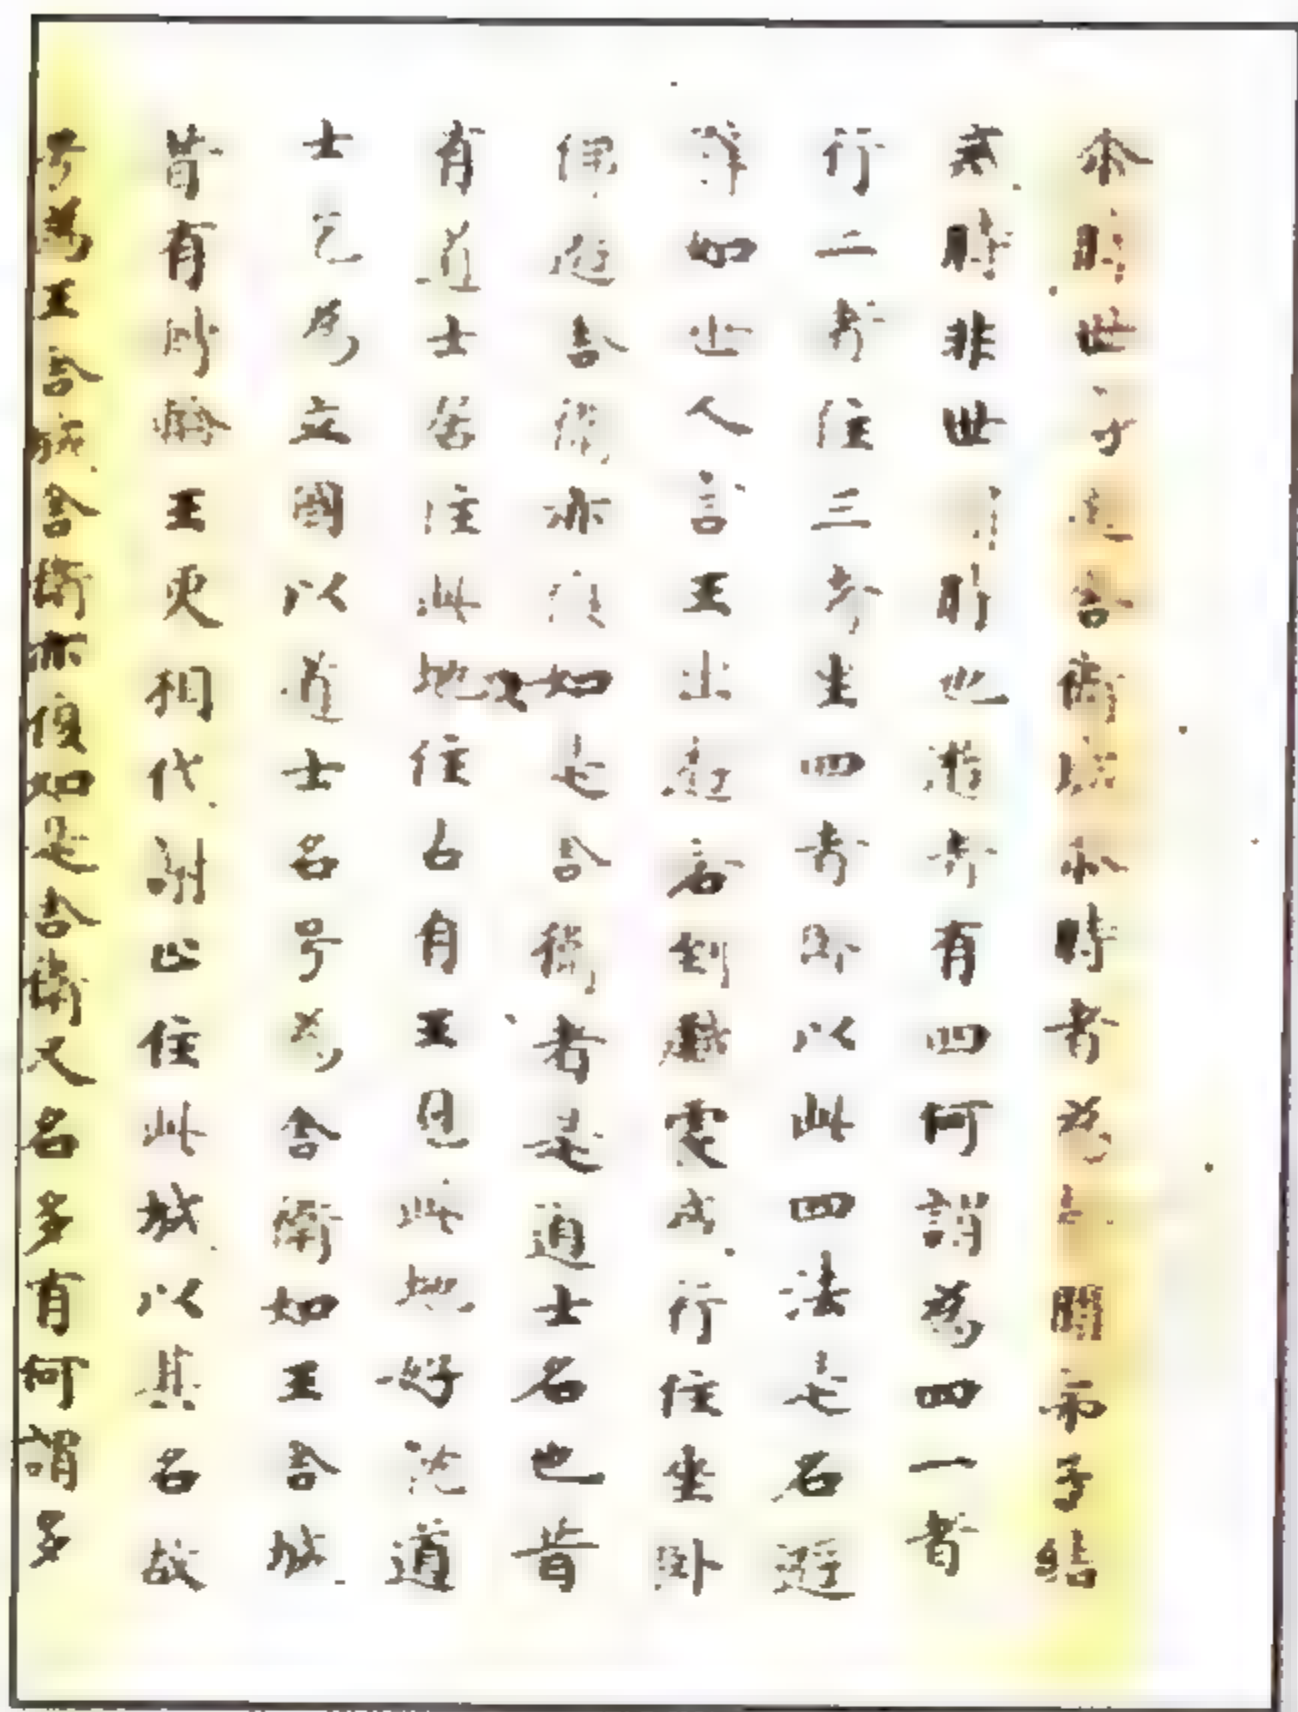 尒時世尊遊舍衛城尒時者為開帝子結
尒時非世時也遊者有四何謂為四一者
行二者住三者坐四者卧以此四法是名遊
譬如世人言王出遊若到戲處或行住坐卧
佛遊舍衛亦復如是舍衛者是道士名也昔
有道士居住此地往古有王見此地好就道
士乞為立國以道士名号為舍衛如王舍城
昔有轉輪王更相代謝止住此城以其名故
号為王舍城舍衛亦復如是舍衛又名多有何謂多